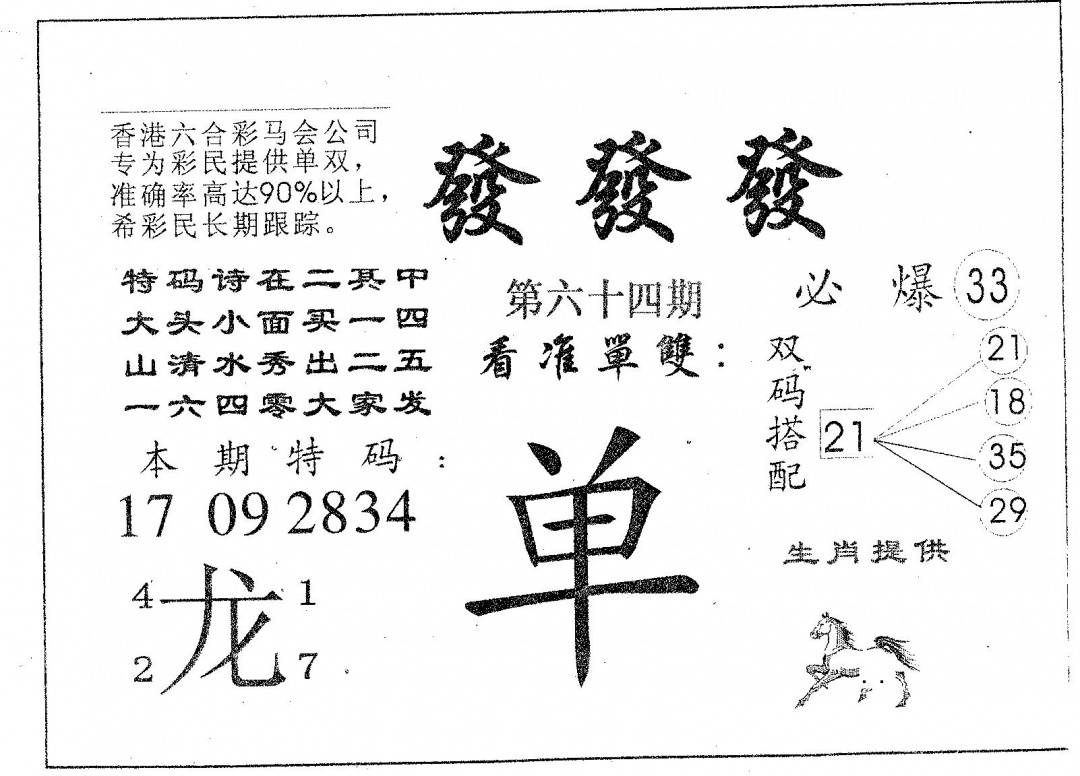 香港六合彩马会公司
专为彩民提供单双，
准确率高达90%以上，
希彩民长期跟踪。
發發發
特码诗在二其中
大头小面买一四
山清水秀出二五
一六四零大家发
第六十四期
看准單雙：
单
必爆33
双码搭配
21
21
18
35
29
本期特码：
17 09 2834
4 1
龙
2 7
生肖提供